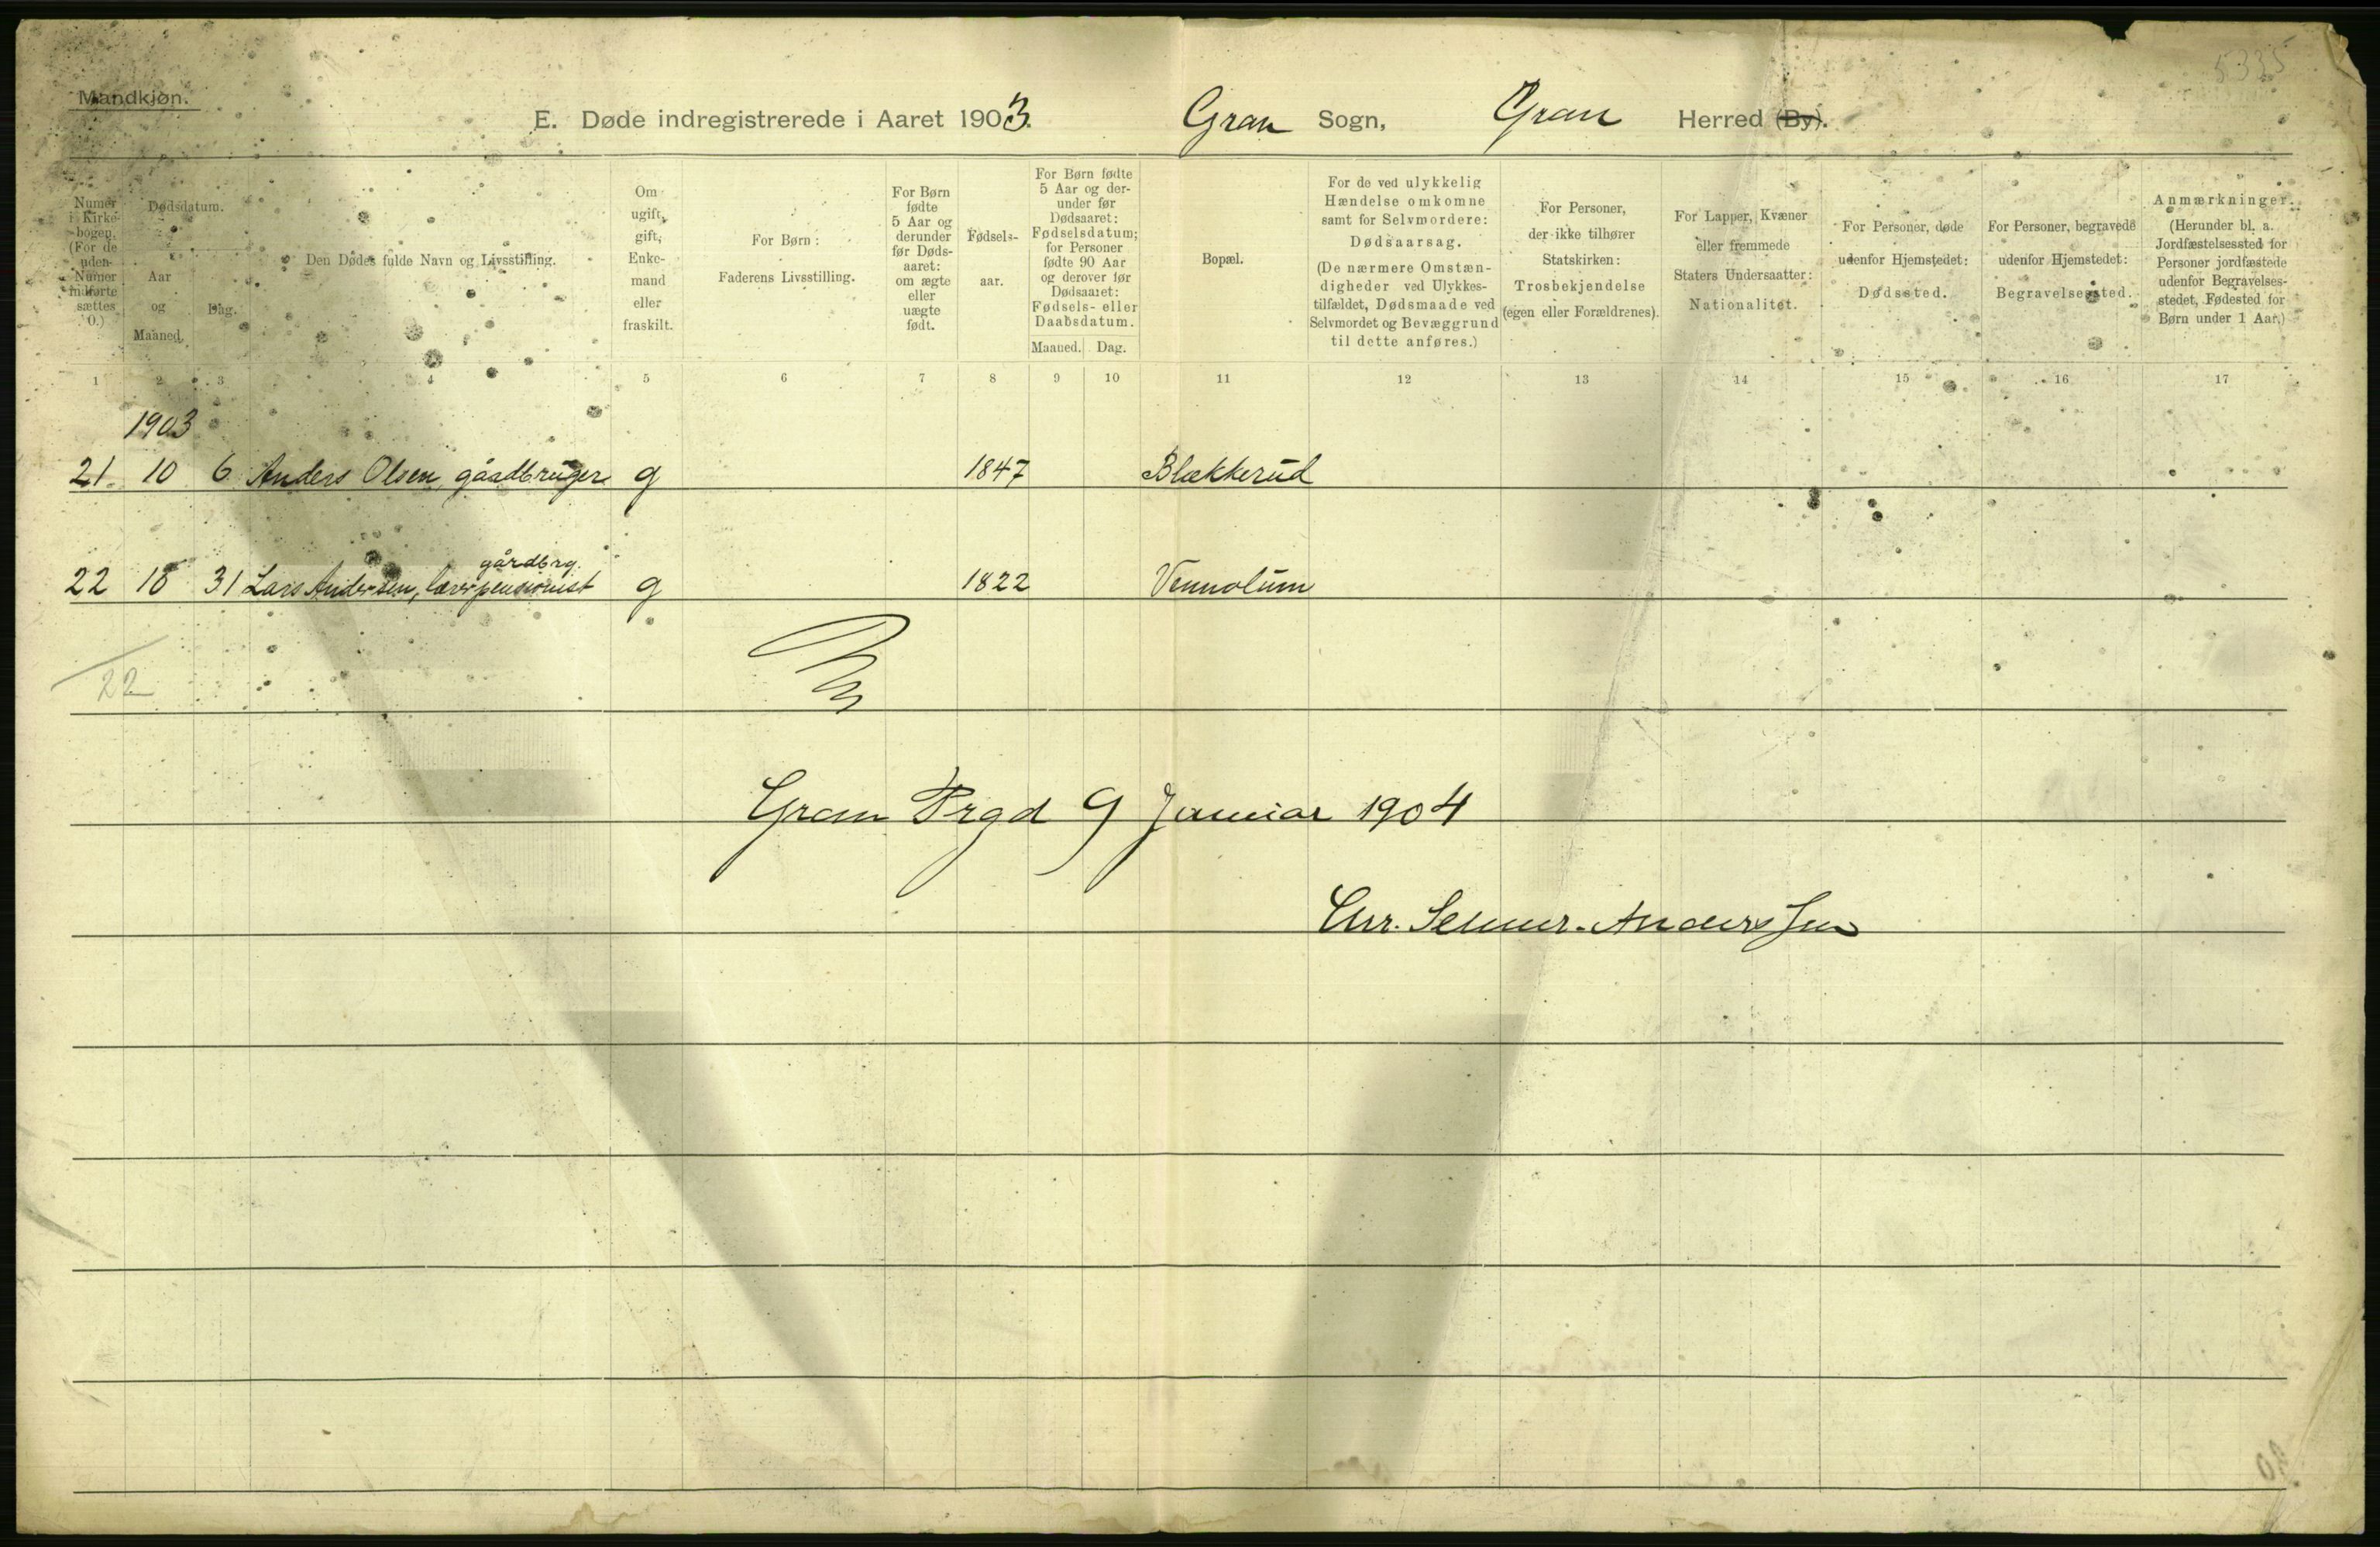 5335
Mandkjøn.
E. Døde indregistrerede i Aaret 1903. Gran Sogn, Gran Herred (By).
Numer i Kirkebogen. (For de uden Numer indførte sættes 0.)
Dødsdatum.
Aar og Maaned.
Dag.
Den Dødes fulde Navn og Livsstilling.
Om ugift, gift, Enkemand eller fraskilt.
For Børn: Faderens Livsstilling.
For Børn fødte 5 Aar og derunder før Dødsaaret: om ægte eller uægte født.
Fødselsaar.
For Børn fødte 5 Aar og derunder før Dødsaaret: Fødselsdatum; for Personer fødte 90 Aar og derover før Dødsaaret: Fødsels- eller Daabsdatum.
Maaned. Dag.
Bopæl.
For de ved ulykkelig Hændelse omkomne samt for Selvmordere: Dødsaarsag. (De nærmere Omstændigheder ved Ulykkestilfældet, Dødsmaade ved Selvmordet og Bevæggrund til dette anføres.)
For Personer, der ikke tilhører Statskirken: Trosbekjendelse (egen eller Forældrenes).
For Lapper, Kvæner eller fremmede Staters Undersaatter: Nationalitet.
For Personer, døde udenfor Hjemstedet: Dødssted.
For Personer, begravede udenfor Hjemstedet: Begravelsessted.
Anmærkninger. (Herunder bl. a. Jordfæstelsessted for Personer jordfæstede udenfor Begravelsesstedet, Fødested for Børn under 1 Aar.)
1 2 3 4 5 6 7 8 9 10 11 12 13 14 15 16 17
1903
21 10 6 Anders Olsen, gårdbruger g 1847 Blækkerud
gårdbrg.
22 31 Lars Andersen, lærerpensionist g 1822 Vennolum
22
Gran Prgd 9 Januar 1904
Chr. Senner-Anderssen